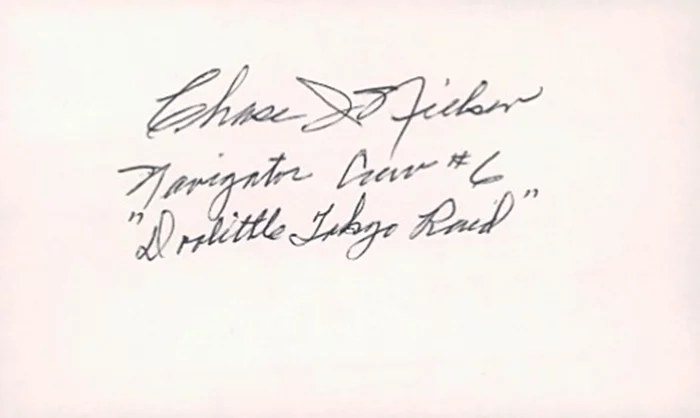 Chase J Nielsen
Navigator Crew #6
"Doolittle Tokyo Raid"